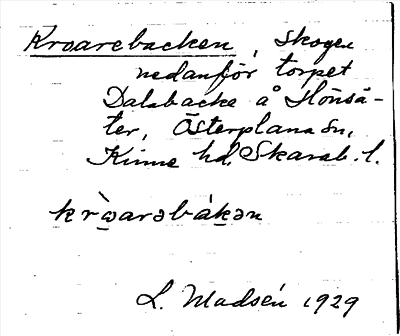 Kroarebacken, skogen
nedanför torpet
Dalabacke å Hönsä-
ter, Österplana sn,
Kinne hd, Skarab. l.
kròarəbákən
L. Madsén 1929